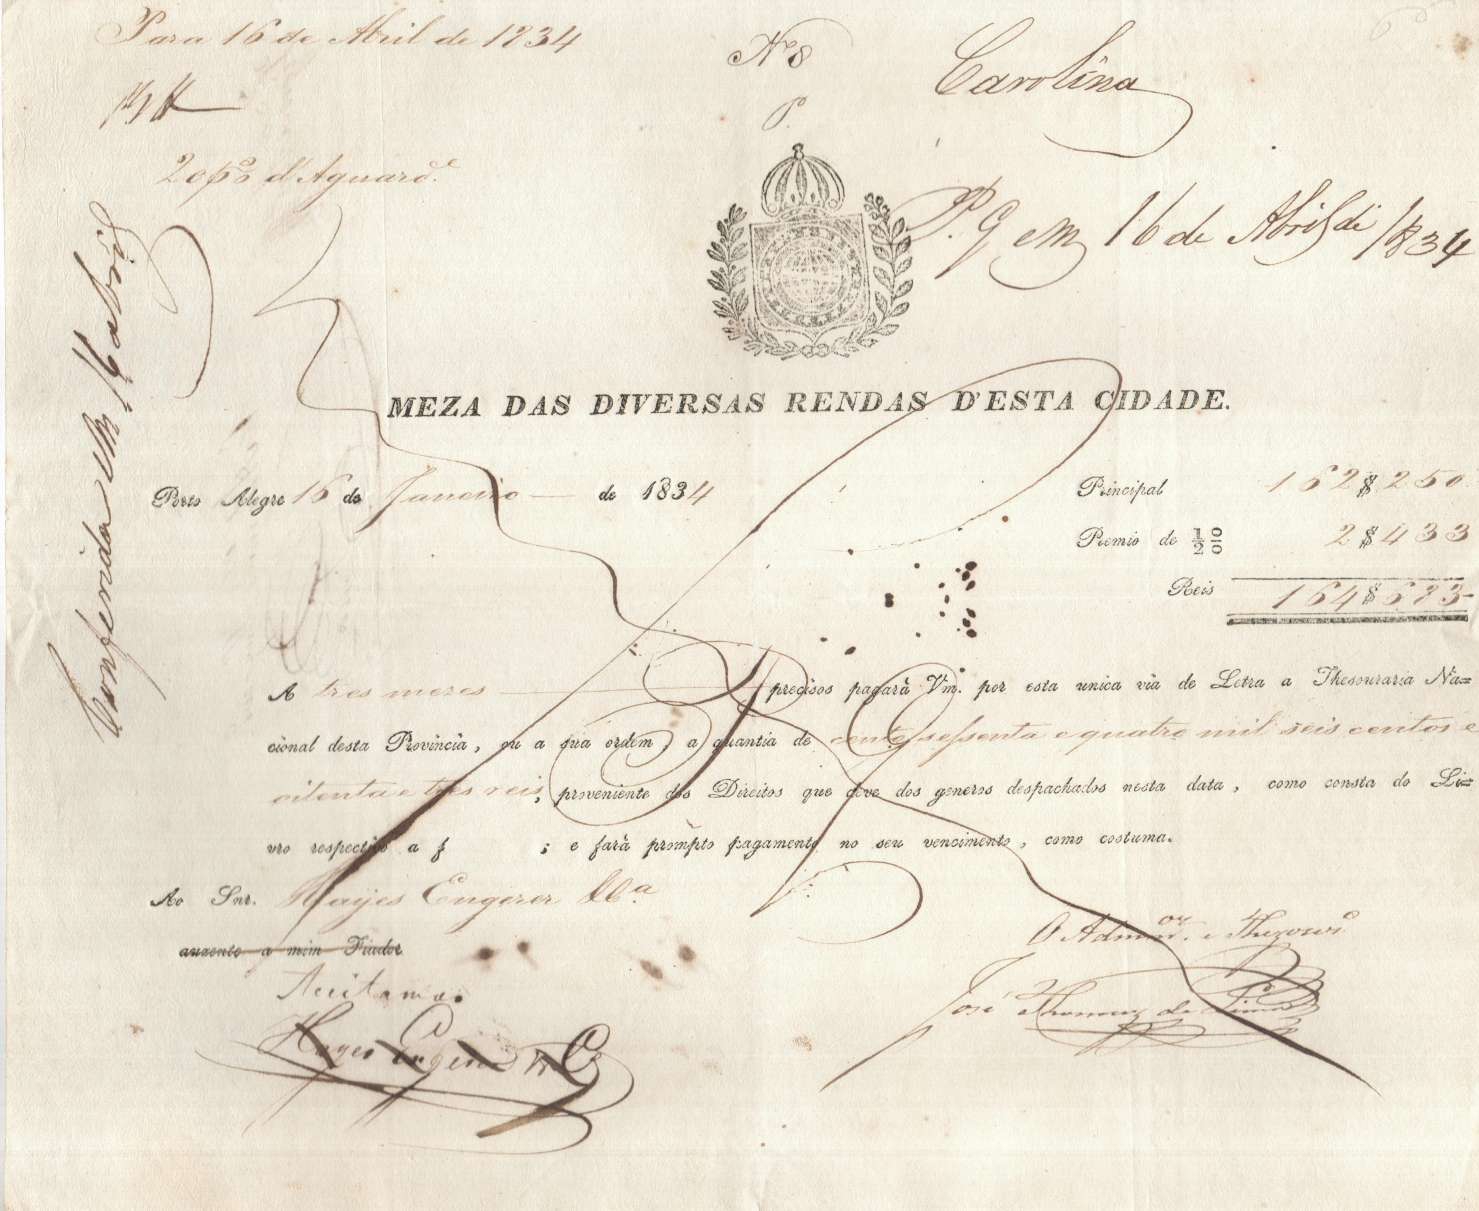 Para 16 de Abril de 1834
Nº 8
Carolina
P.
20 pas d'Aguarde.
P. G em 16 de Abril de 1834
Conferida em 16 abril
MEZA DAS DIVERSAS RENDAS D'ESTA CIDADE.
Porto Alegre 16 de Janeiro de 1834
Principal 162$250
Premio de 1/2 % 2$433
Reis 164$683
A tres mezes precisos pagará Vm. por esta unica via de Letra a Thesouraria Na=
cional desta Provincia, ou a sua ordem, a quantia de cento sessenta e quatro mil seis centos e
oitenta e tres reis, proveniente dos Direitos que deve dos generos despachados nesta data, como consta do Li=
vro respectivo a f ; e fará prompto pagamento no seu vencimento, como costuma.
Ao Snr. Hayes Engerer & Ca.
auzente a mim Fiador
O Admor. e Thezouro.
Aceitamos
José Thomaz de Lima
Hayes Engerer & Co